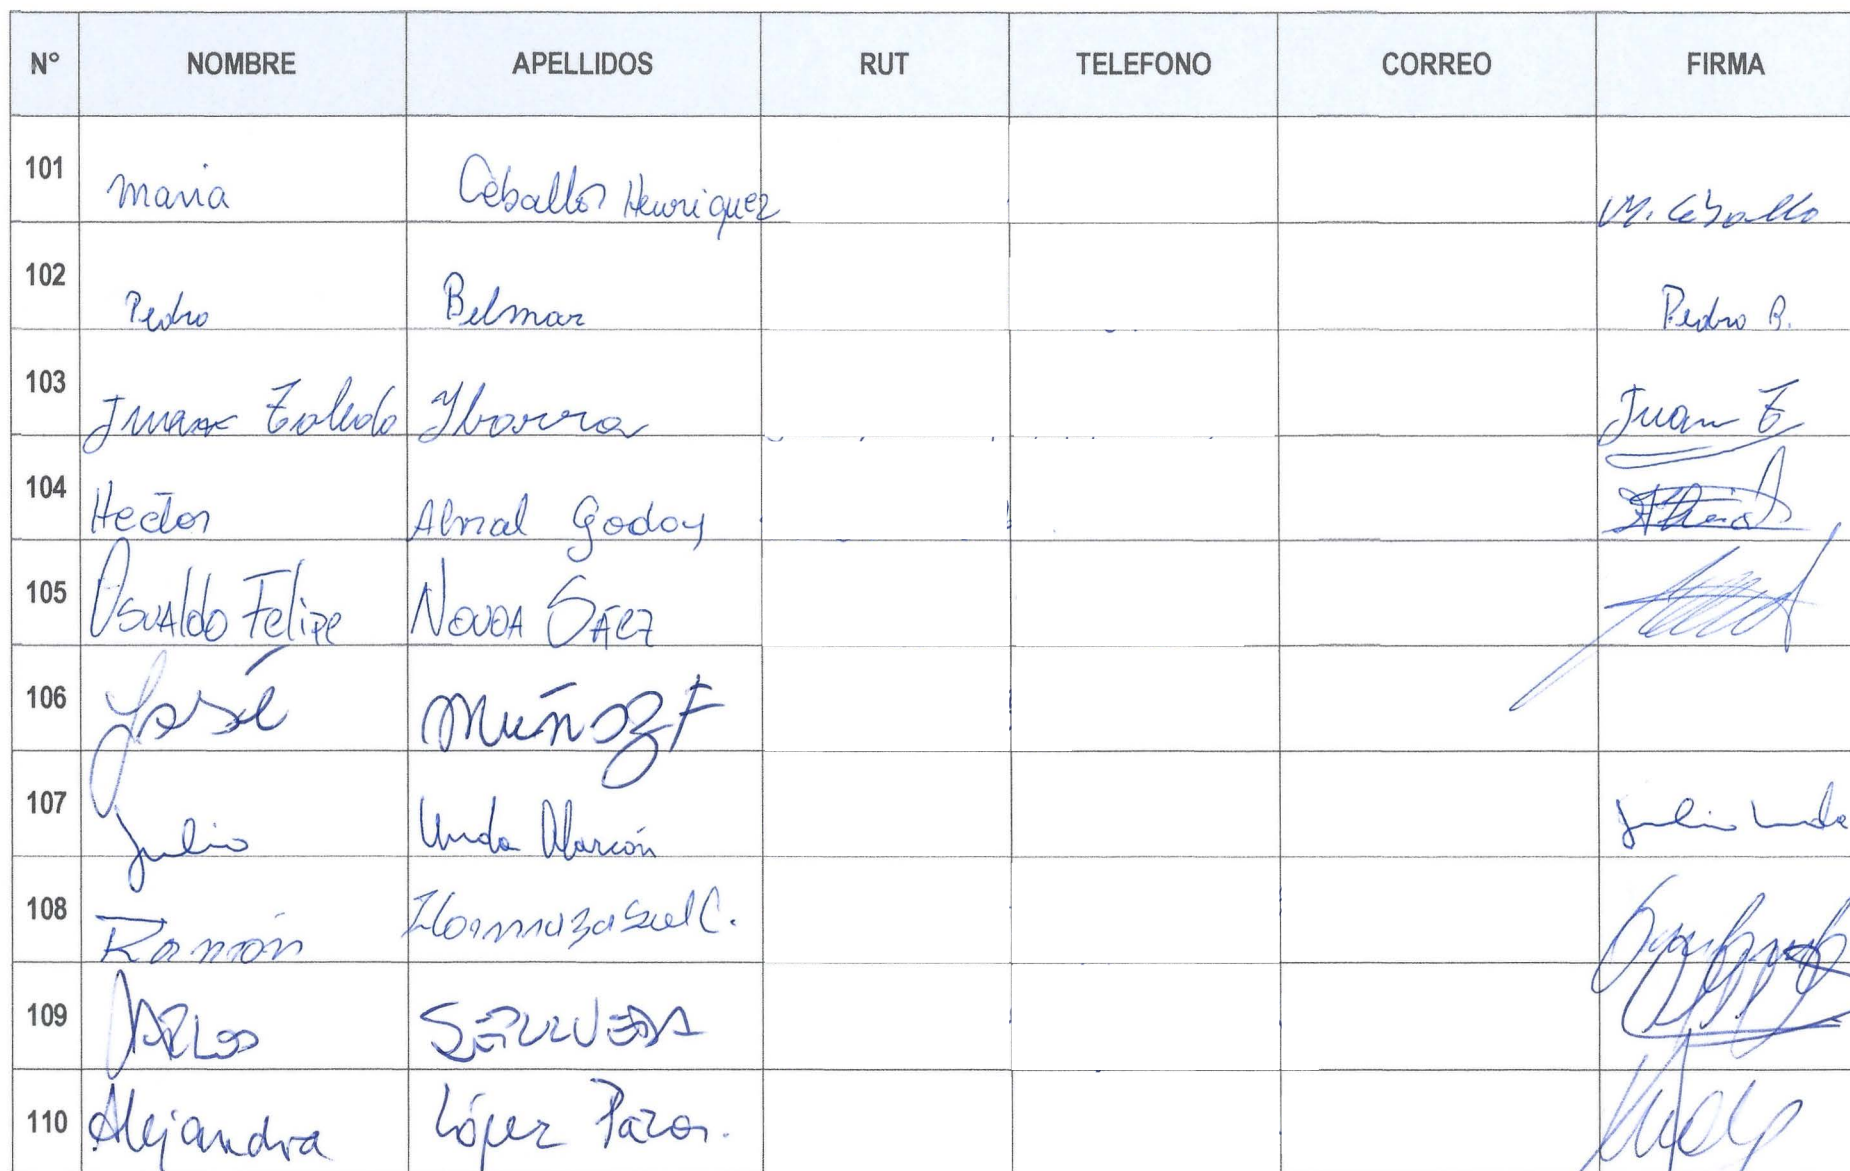 N° NOMBRE APELLIDOS RUT TELEFONO CORREO FIRMA
101 Maria Ceballos Henriquez M. Ceballo
102 Pedro Belmar Pedro B.
103 Juan Toledo Ybarra Juan T
104 Hector Godoy
105 Osvaldo Felipe NOVOA SÁEZ
106 José Muñoz F
107 Julio Unda Alarcón Julio Unda
108 Ramón C.
109 CARLOS SEPULVEDA
110 Alejandra López Pazos.